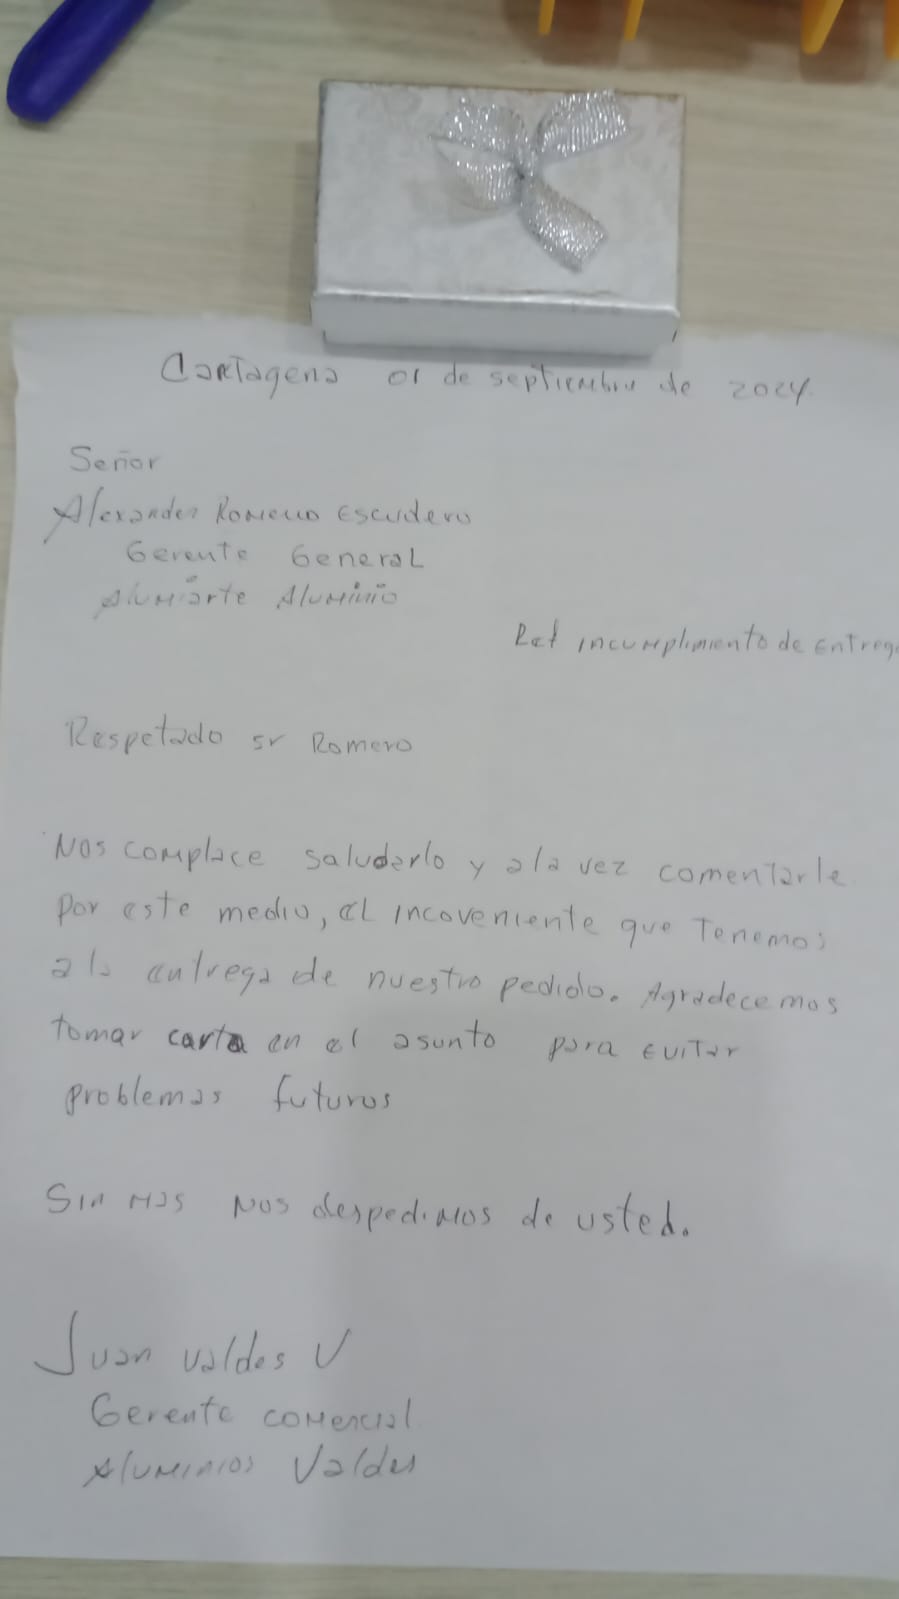 Cartagena 01 de septiembre de 2024.
Señor
Alexander Romero Escudero
Gerente General
Alumiarte Aluminio
Ref incumplimiento de Entrega
Respetado sr Romero
Nos complace saludarlo y a la vez comentarle
por este medio, el incoveniente que Tenemos
a la entrega de nuestro pedido. Agradecemos
tomar carta en el asunto para Evitar
problemas futuros
Sin mas nos despedimos de usted.
Juan Valdes V
Gerente comercial
Aluminios Valdes